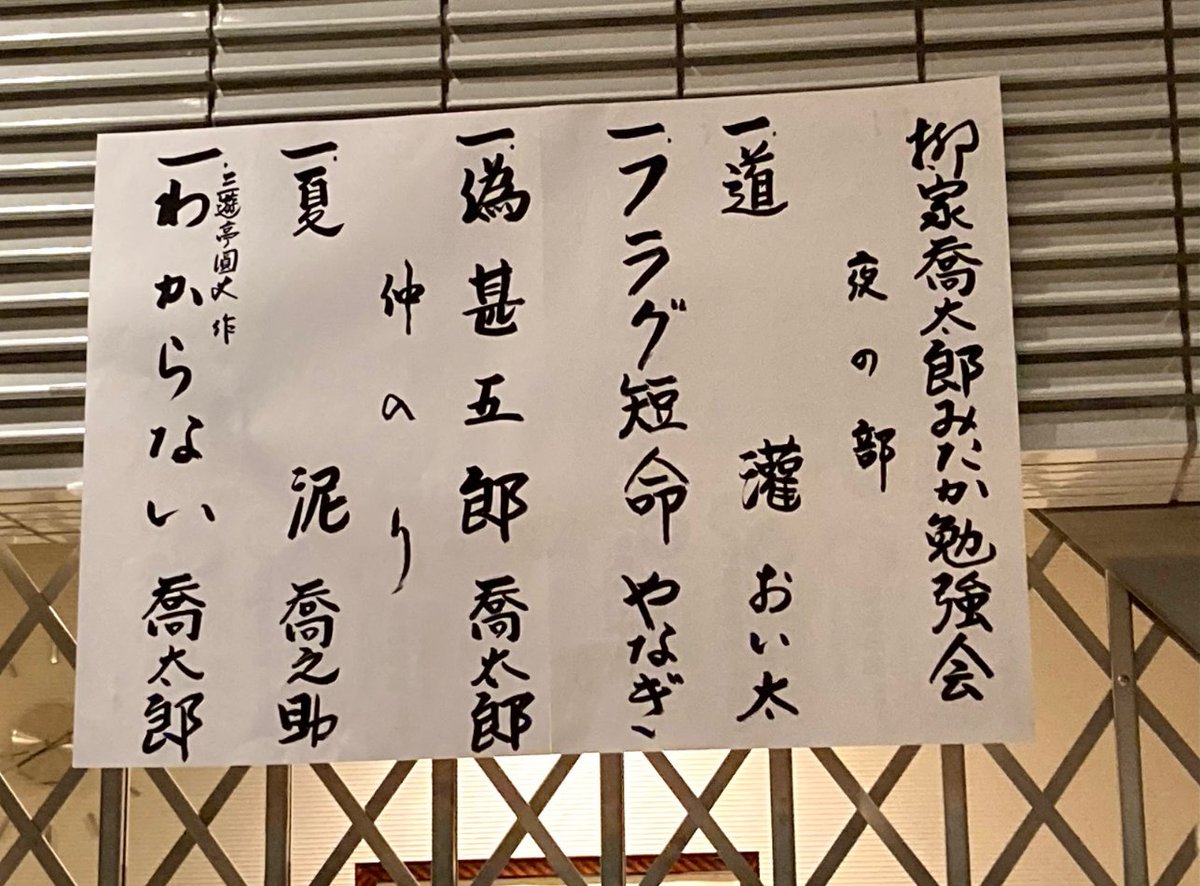 柳家喬太郎みたか勉強会
夜の部
一.道灌 おい太
一.フラグ短命 やなぎ
一.偽甚五郎 喬太郎
仲のり
一.夏泥 喬之助
三遊亭圓丈 作
一.わからない 喬太郎